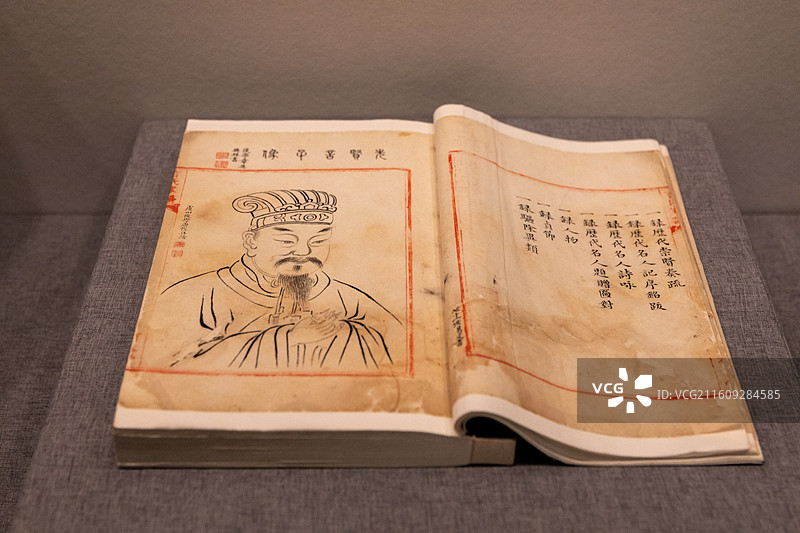 賢善像
一錄歷代崇賢奏疏
一錄歷代名人記序銘跋
一錄歷代名人詩咏
一錄歷代名人題贈匾對
一錄人物
一錄貞節
一錄驅除異類
VCG
VCG.COM
ID:VCG211609284585